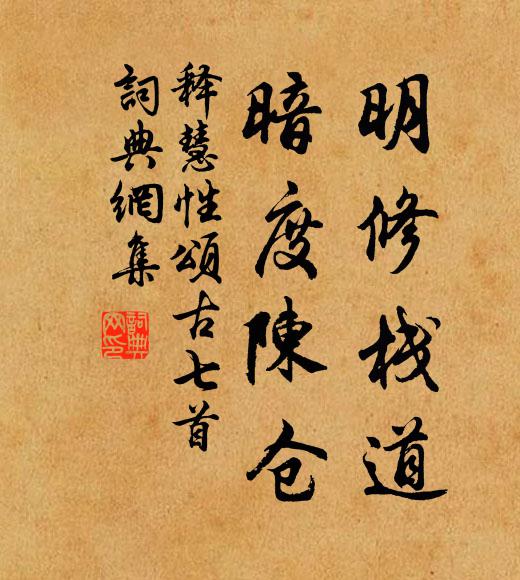 明修栈道
暗度陳仓
释慧性頌古七首
詞典網集
詞典
网印